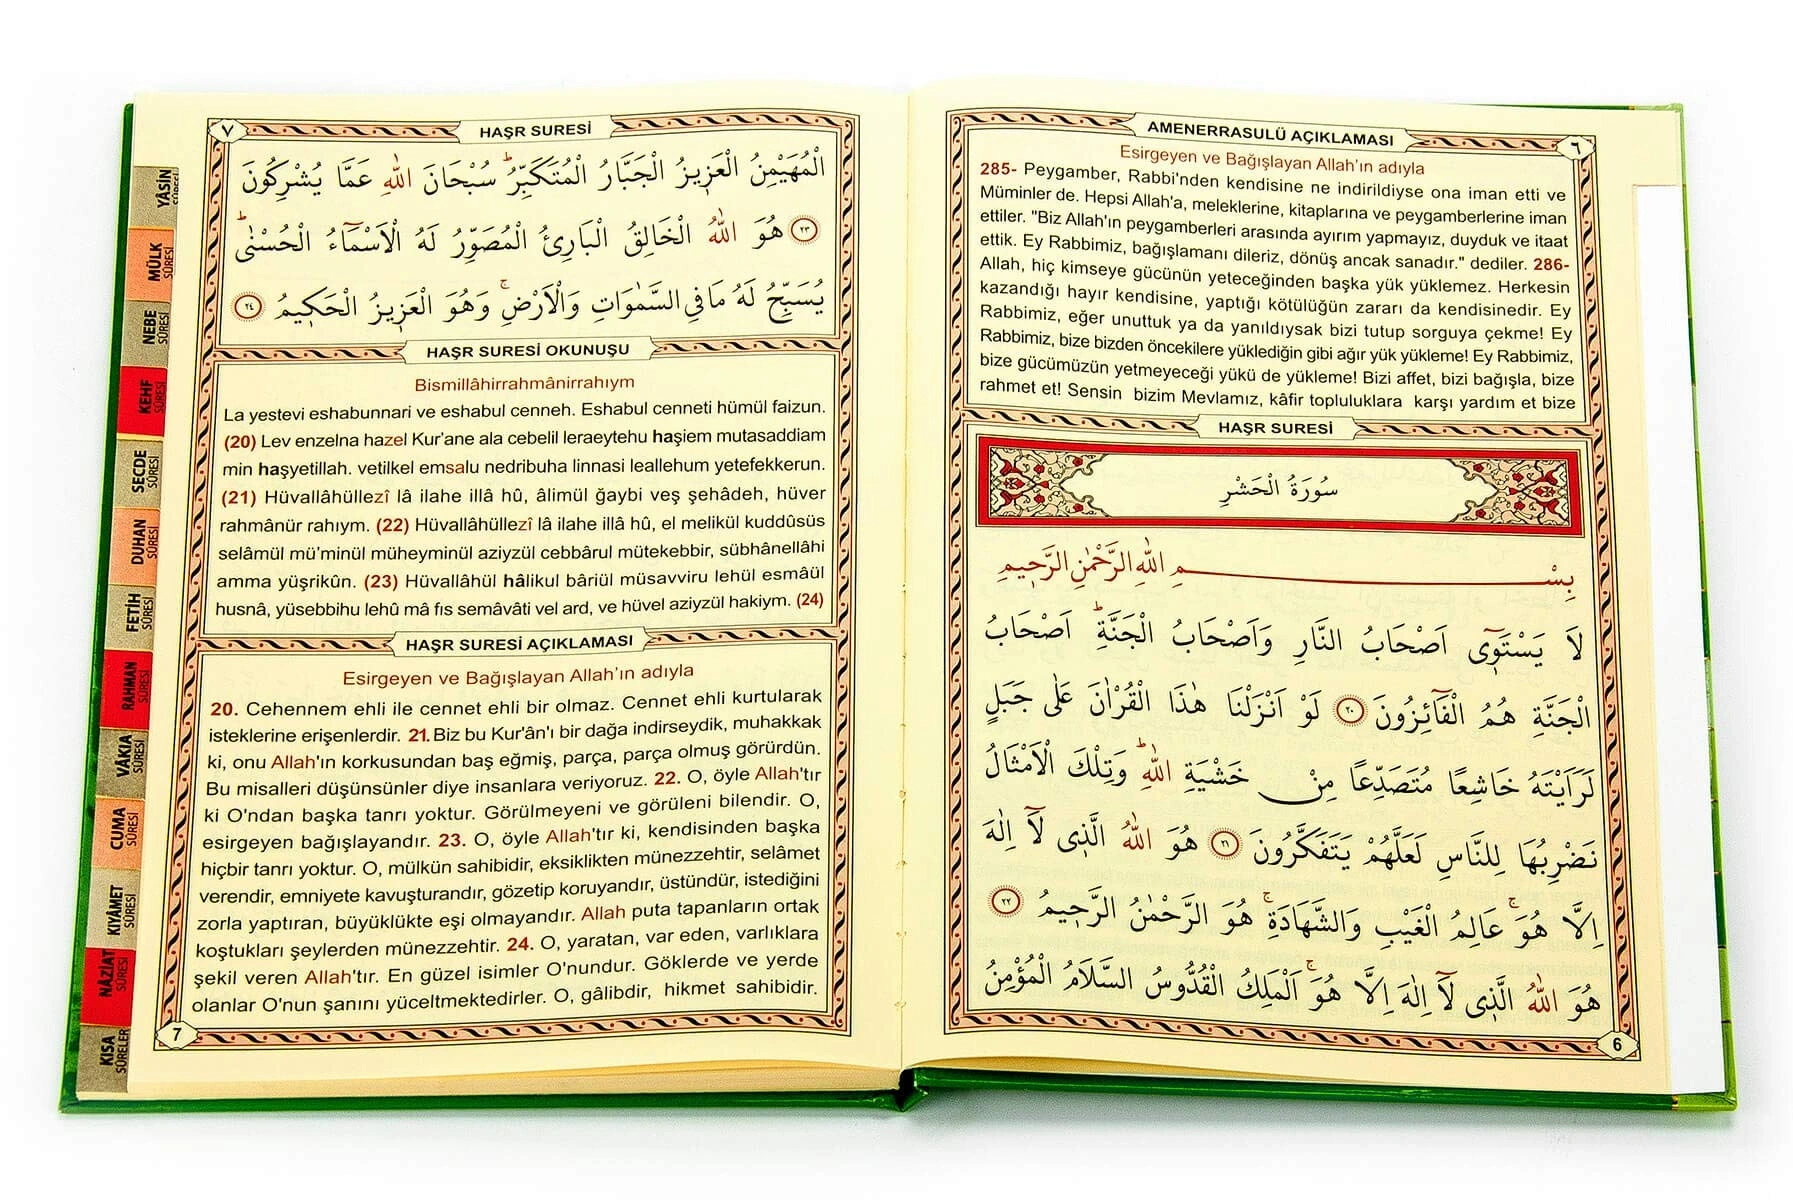 AMENERRASULÜ AÇIKLAMASI
٦
Esirgeyen ve Bağışlayan Allah'ın adıyla
285- Peygamber, Rabbi'nden kendisine ne indirildiyse ona iman etti ve
Müminler de. Hepsi Allah'a, meleklerine, kitaplarına ve peygamberlerine iman
ettiler. "Biz Allah'ın peygamberleri arasında ayırım yapmayız, duyduk ve itaat
ettik. Ey Rabbimiz, bağışlamanı dileriz, dönüş ancak sanadır." dediler. 286-
Allah, hiç kimseye gücünün yeteceğinden başka yük yüklemez. Herkesin
kazandığı hayır kendisine, yaptığı kötülüğün zararı da kendisinedir. Ey
Rabbimiz, eğer unuttuk ya da yanıldıysak bizi tutup sorguya çekme! Ey
Rabbimiz, bize bizden öncekilere yüklediğin gibi ağır yük yükleme! Ey Rabbimiz,
bize gücümüzün yetmeyeceği yükü de yükleme! Bizi affet, bizi bağışla, bize
rahmet et! Sensin bizim Mevlamız, kâfir topluluklara karşı yardım et bize
HAŞR SURESİ
سُورَةُ الْحَشْرِ
بِسْمِ اللهِ الرَّحْمٰنِ الرَّحِيمِ
لَا يَسْتَوِٓي اَصْحَابُ النَّارِ وَاَصْحَابُ الْجَنَّةِۜ اَصْحَابُ
الْجَنَّةِ هُمُ الْفَٓائِزُونَ ٢٠ لَوْ اَنْزَلْنَا هٰذَا الْقُرْاٰنَ عَلٰى جَبَلٍ
لَرَاَيْتَهُ خَاشِعًا مُتَصَدِّعًا مِنْ خَشْيَةِ اللهِۜ وَتِلْكَ الْاَمْثَالُ
نَضْرِبُهَا لِلنَّاسِ لَعَلَّهُمْ يَتَفَكَّرُونَ ٢١ هُوَ اللهُ الَّذِى لَٓا اِلٰهَ
اِلَّا هُوَۚ عَالِمُ الْغَيْبِ وَالشَّهَادَةِۚ هُوَ الرَّحْمٰنُ الرَّحِيمُ ٢٢
هُوَ اللهُ الَّذِى لَٓا اِلٰهَ اِلَّا هُوَۚ اَلْمَلِكُ الْقُدُّوسُ السَّلَامُ الْمُؤْمِنُ
6
٧
HAŞR SURESİ
الْمُهَيْمِنُ الْعَزِيزُ الْجَبَّارُ الْمُتَكَبِّرُۜ سُبْحَانَ اللهِ عَمَّا يُشْرِكُونَ
٢٣ هُوَ اللهُ الْخَالِقُ الْبَارِئُ الْمُصَوِّرُ لَهُ الْاَسْمَٓاءُ الْحُسْنٰىۜ
يُسَبِّحُ لَهُ مَا فِي السَّمٰوَاتِ وَالْاَرْضِۚ وَهُوَ الْعَزِيزُ الْحَكِيمُ ٢٤
HAŞR SURESİ OKUNUŞU
Bismillâhirrahmânirrahıym
La yestevi eshabunnari ve eshabul cenneh. Eshabul cenneti hümül faizun.
(20) Lev enzelna hazel Kur'ane ala cebelil leraeytehu haşiem mutasaddiam
min haşyetillah. vetilkel emsalu nedribuha linnasi leallehum yetefekkerun.
(21) Hüvallâhüllezî lâ ilahe illâ hû, âlimül ğaybi veş şehâdeh, hüver
rahmânür rahıym. (22) Hüvallâhüllezî lâ ilahe illâ hû, el melikül kuddûsüs
selâmül mü'minül müheyminül aziyzül cebbârul mütekebbir, sübhânellâhi
amma yüşrikûn. (23) Hüvallâhül hâlikul bâriül müsavviru lehül esmâül
husnâ, yüsebbihu lehû mâ fıs semâvâti vel ard, ve hüvel aziyzül hakiym. (24)
HAŞR SURESİ AÇIKLAMASI
Esirgeyen ve Bağışlayan Allah'ın adıyla
20. Cehennem ehli ile cennet ehli bir olmaz. Cennet ehli kurtularak
isteklerine erişenlerdir. 21. Biz bu Kur'ân'ı bir dağa indirseydik, muhakkak
ki, onu Allah'ın korkusundan baş eğmiş, parça, parça olmuş görürdün.
Bu misalleri düşünsünler diye insanlara veriyoruz. 22. O, öyle Allah'tır
ki O'ndan başka tanrı yoktur. Görülmeyeni ve görüleni bilendir. O,
esirgeyen bağışlayandır. 23. O, öyle Allah'tır ki, kendisinden başka
hiçbir tanrı yoktur. O, mülkün sahibidir, eksiklikten münezzehtir, selâmet
verendir, emniyete kavuşturandır, gözetip koruyandır, üstündür, istediğini
zorla yaptıran, büyüklükte eşi olmayandır. Allah puta tapanların ortak
koştukları şeylerden münezzehtir. 24. O, yaratan, var eden, varlıklara
şekil veren Allah'tır. En güzel isimler O'nundur. Göklerde ve yerde
olanlar O'nun şanını yüceltmektedirler. O, gâlibdir, hikmet sahibidir.
7
YÂSİN SÛRESİ
MÜLK SÛRESİ
NEBE SÛRESİ
KEHF SÛRESİ
SECDE SÛRESİ
DUHAN SÛRESİ
FETİH SÛRESİ
RAHMAN SÛRESİ
VÂKIA SÛRESİ
CUMA SÛRESİ
KIYÂMET SÛRESİ
NÂZİAT SÛRESİ
KISA SÛRELER